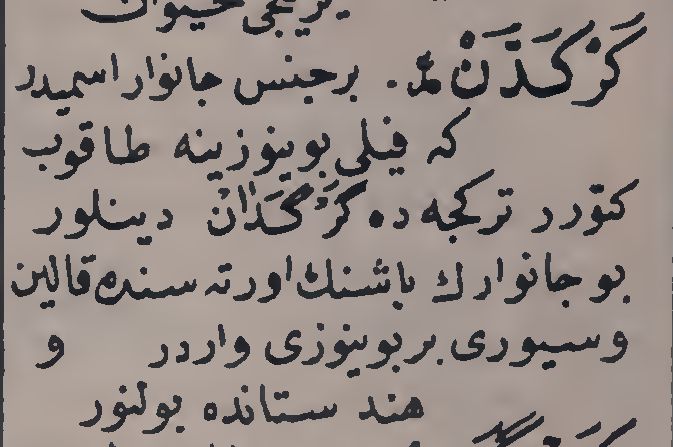 يرتيجى حيوان
كَرْكَدَّنْ بر جنس جانوار اسميدر
كه فيلى بوينوزينه طاقوب
كتورر تركجه ده كَرْكَدَانْ دينلور
بو جانوارك باشنك اورته سنده قالين
و سيورى بر بوينوزى واردر و
هند ستانده بولنور